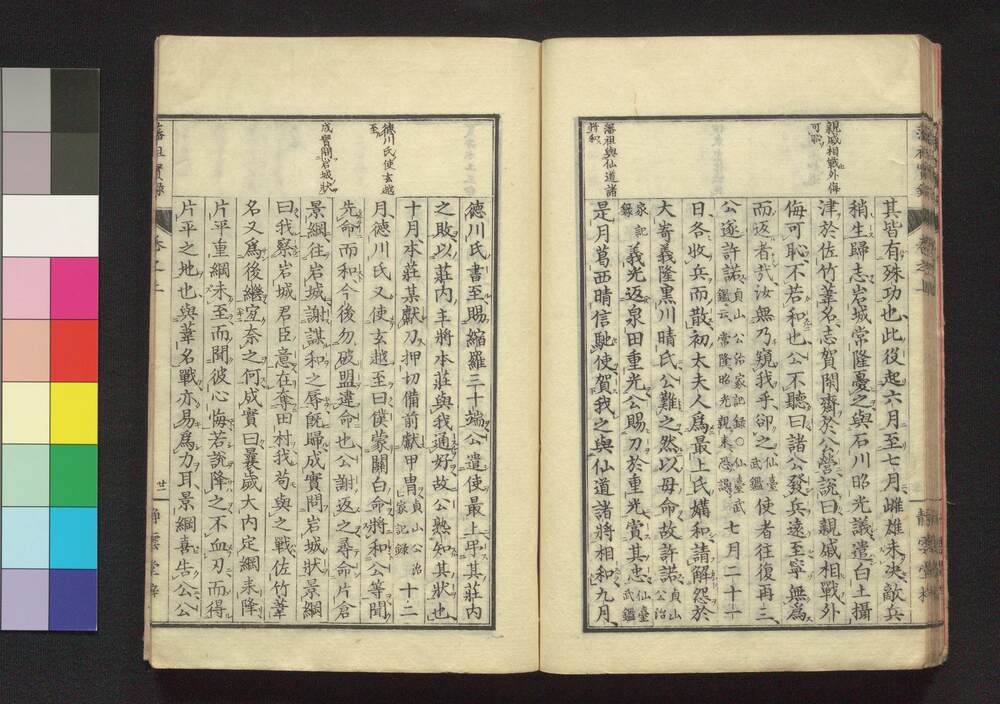 親戚相戰外侮
可恥
藩祖與仙道諸
將和
其皆有殊功也此役起六月至七月雌雄未決敵兵
稍生歸志岩城常隆憂之與石川昭光議遣白土攝
津於佐竹葦名志賀閑齋於公營說曰親戚相戰外
侮可恥不若和也公不聽曰諸公發兵遠至寧無為
而返者哉汝無乃窺我乎卻之仙臺武鑑使者往復再三
公遂許諾貞山公治家記録○仙臺武鑑云常隆昭光親來懇謁七月二十一
日各收兵而散初太夫人為最上氏媾和請解怨於
大崎義隆黒川晴氏公難之然以母命故許諾貞山公治
家記録義光返泉田重光公賜刀於重光賞其忠仙臺武鑑
是月葛西晴信馳使賀我之與仙道諸將相和九月
德川氏使玄越
至
成實問岩城狀
德川氏書至賜縮羅三十端公遣使最上弔其莊内
之敗以莊内主將本莊與我通好故公熟知其狀也
十月本莊某獻刀押切備前獻甲冑貞山公治家記録十二
月德川氏又使玄越至曰僕蒙關白命將和公等聞
先命而和今後勿破盟違命也公謝返之尋命片倉
景綱往岩城謝謀和之辱既歸成實問岩城狀景綱
曰我察岩城君臣意在奪田村我苟與之戰佐竹葦
名又為後繼寔奈之何成實曰曩歲大内定綱来降
片平重綱未至而聞彼心悔若說降之不血刃而得
片平之地也與葦名戰亦易為力耳景綱喜告公公
藩祖實錄
卷之上
廿
靜雲堂